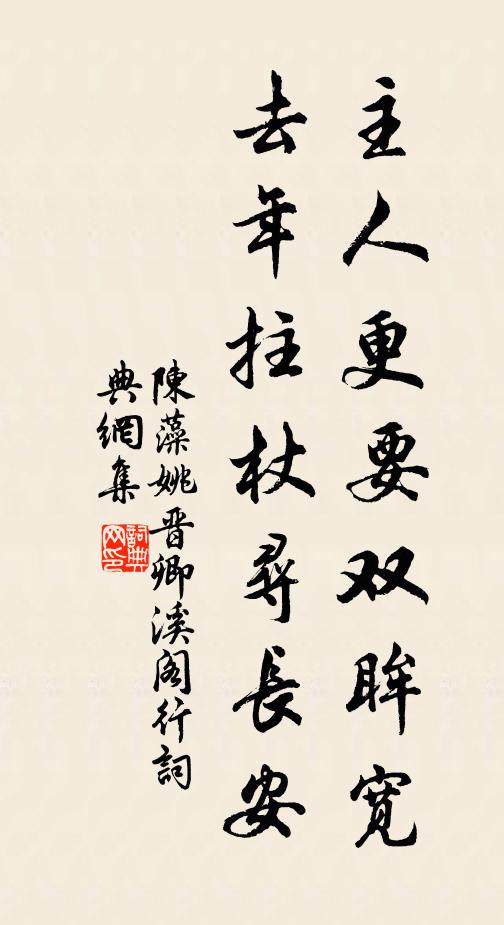 主人更要双眸寬
去年拄杖尋長安
陳藻姚晋卿溪阁行詞
典網集
詞典
网印